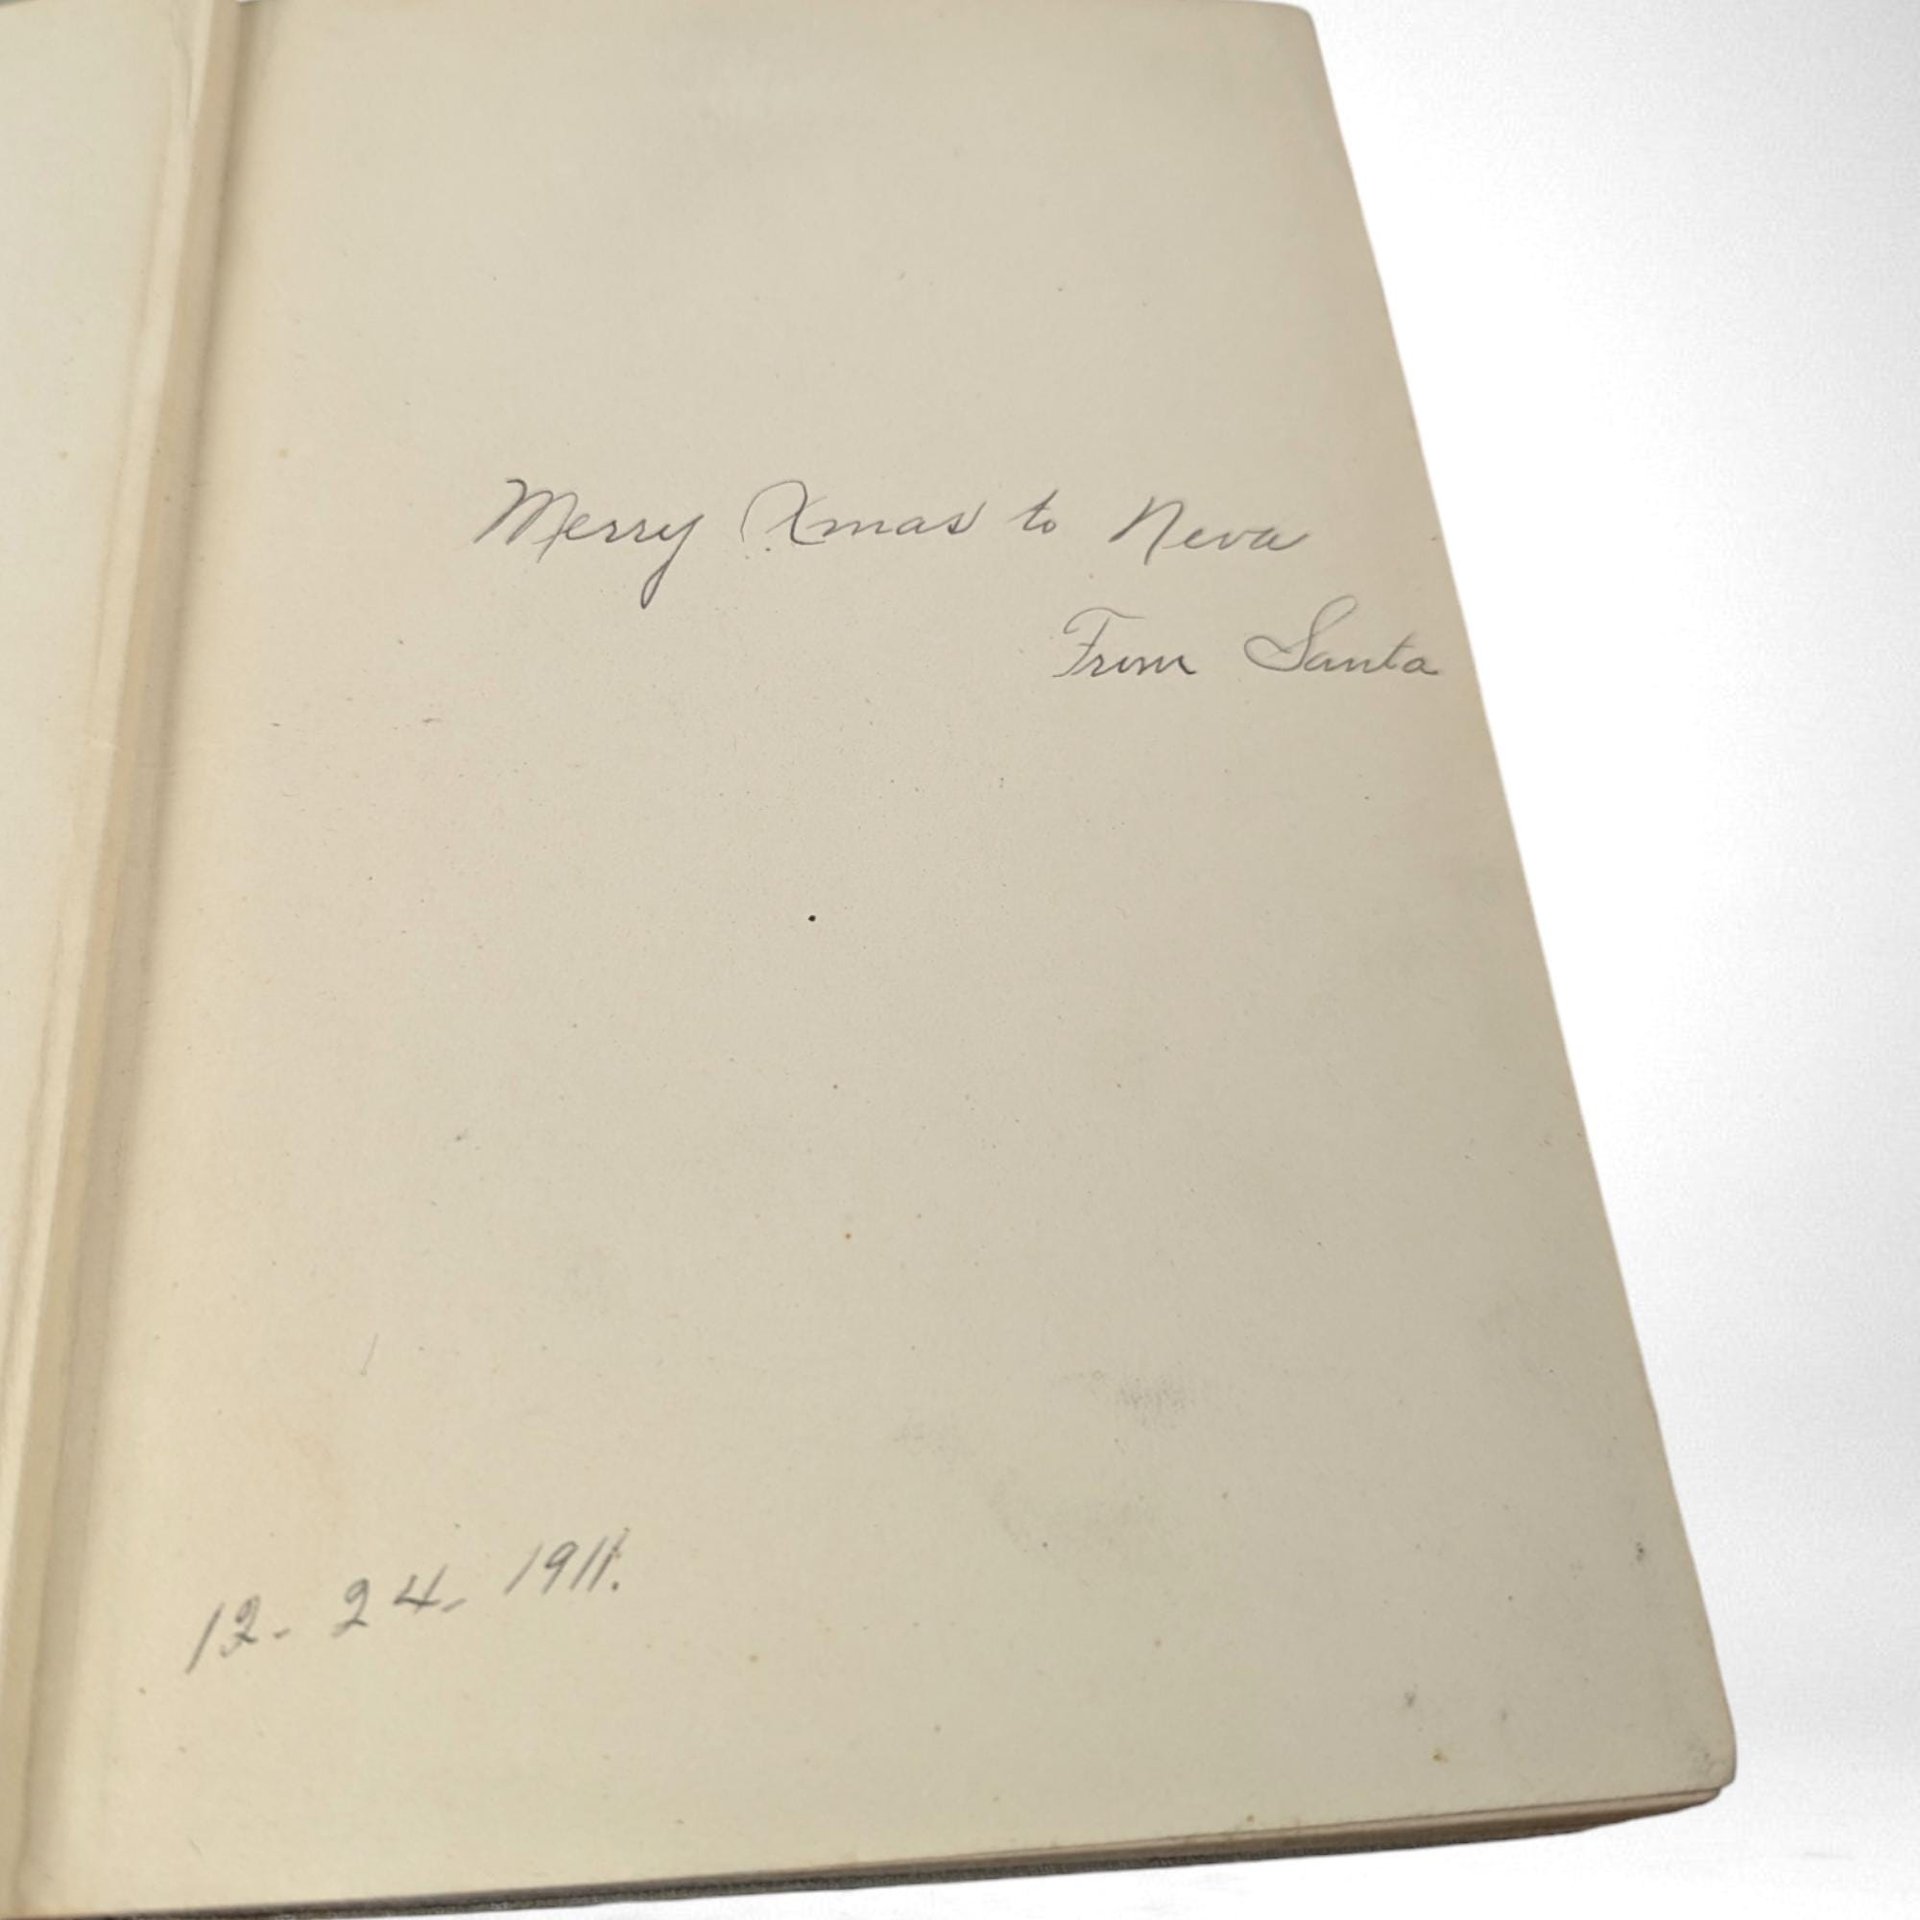 Merry Xmas to Neva
From Santa
12-24-1911.